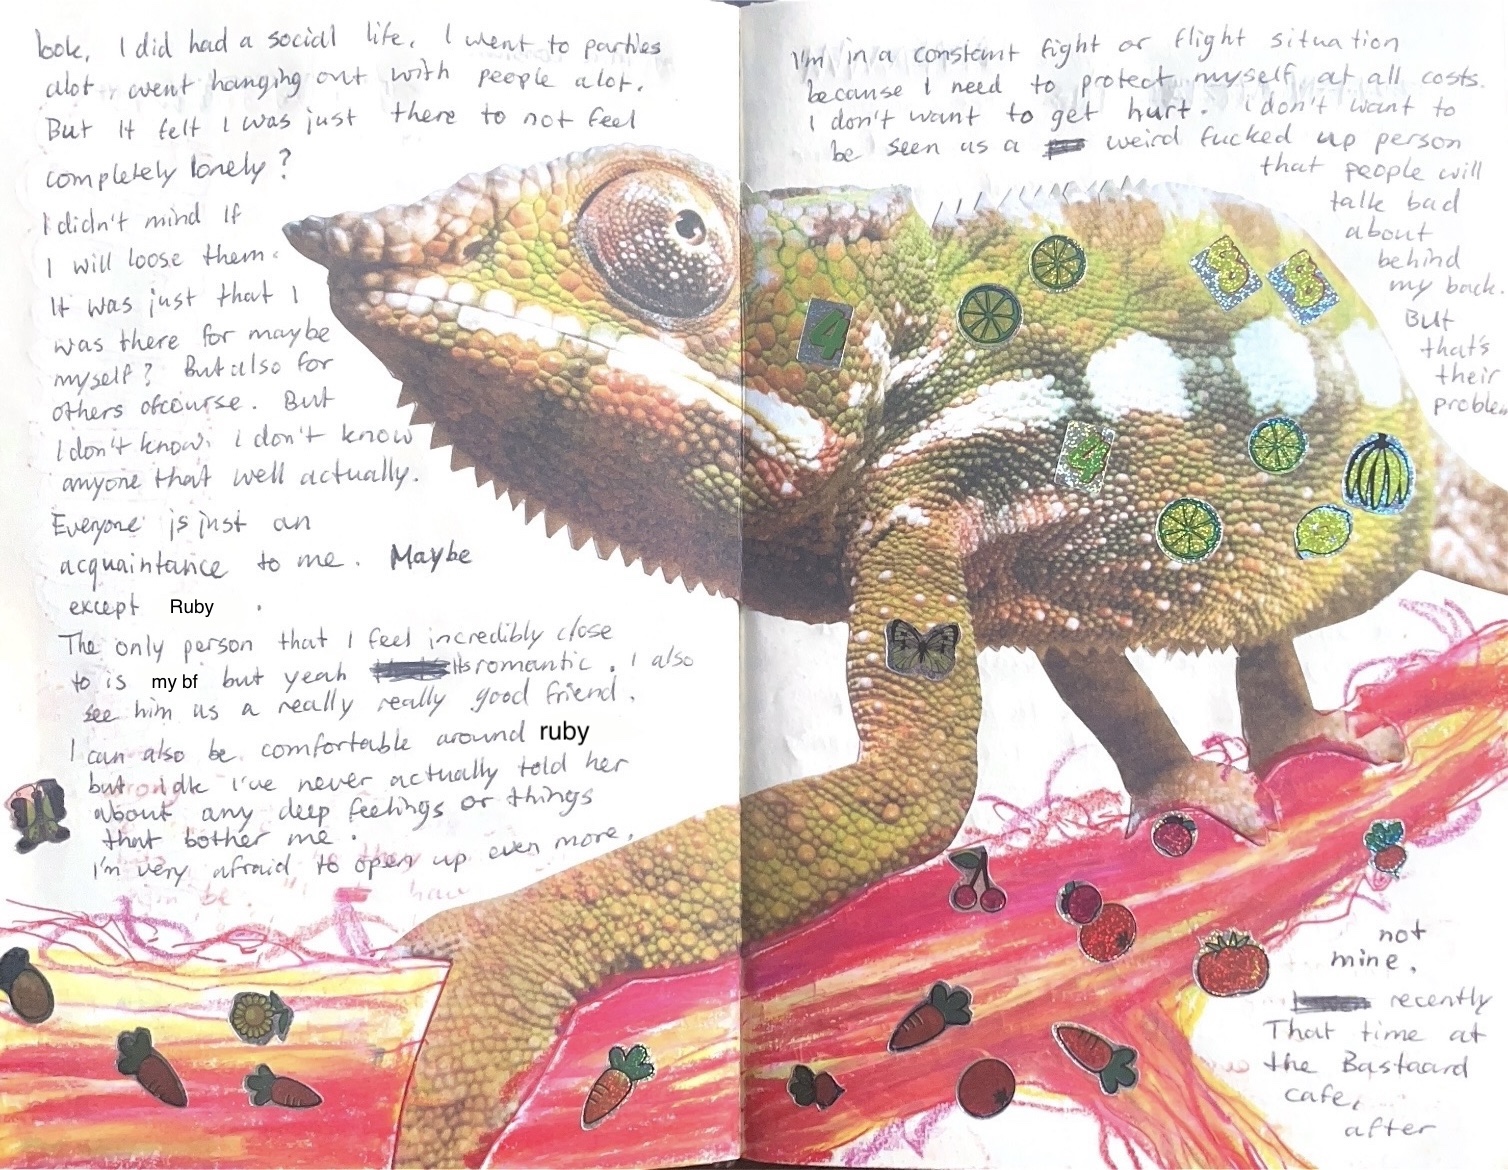 look, I did had a social life. I went to parties
alot, went hanging out with people alot.
But it felt I was just there to not feel
completely lonely?
I didn't mind if
I will loose them.
It was just that I
was there for maybe
myself? But also for
others ofcourse. But
I don't know. i don't know
anyone that well actually.
Everyone is just an
acquaintance to me. Maybe
except Ruby.
The only person that I feel incredibly close
to is my bf but yeah its romantic. I also
see him as a really really good friend.
I can also be comfortable around ruby
but idk i've never actually told her
about any deep feelings or things
that bother me.
I'm very afraid to open up even more.
I'm in a constant fight or flight situation
because i need to protect myself at all costs.
I don't want to get hurt. i don't want to
be seen as a weird fucked up person
that people will
talk bad
about
behind
my back.
But
that's
their
problem
4
5
3
4
not
mine.
recently
That time at
the Bastaard
cafe,
after